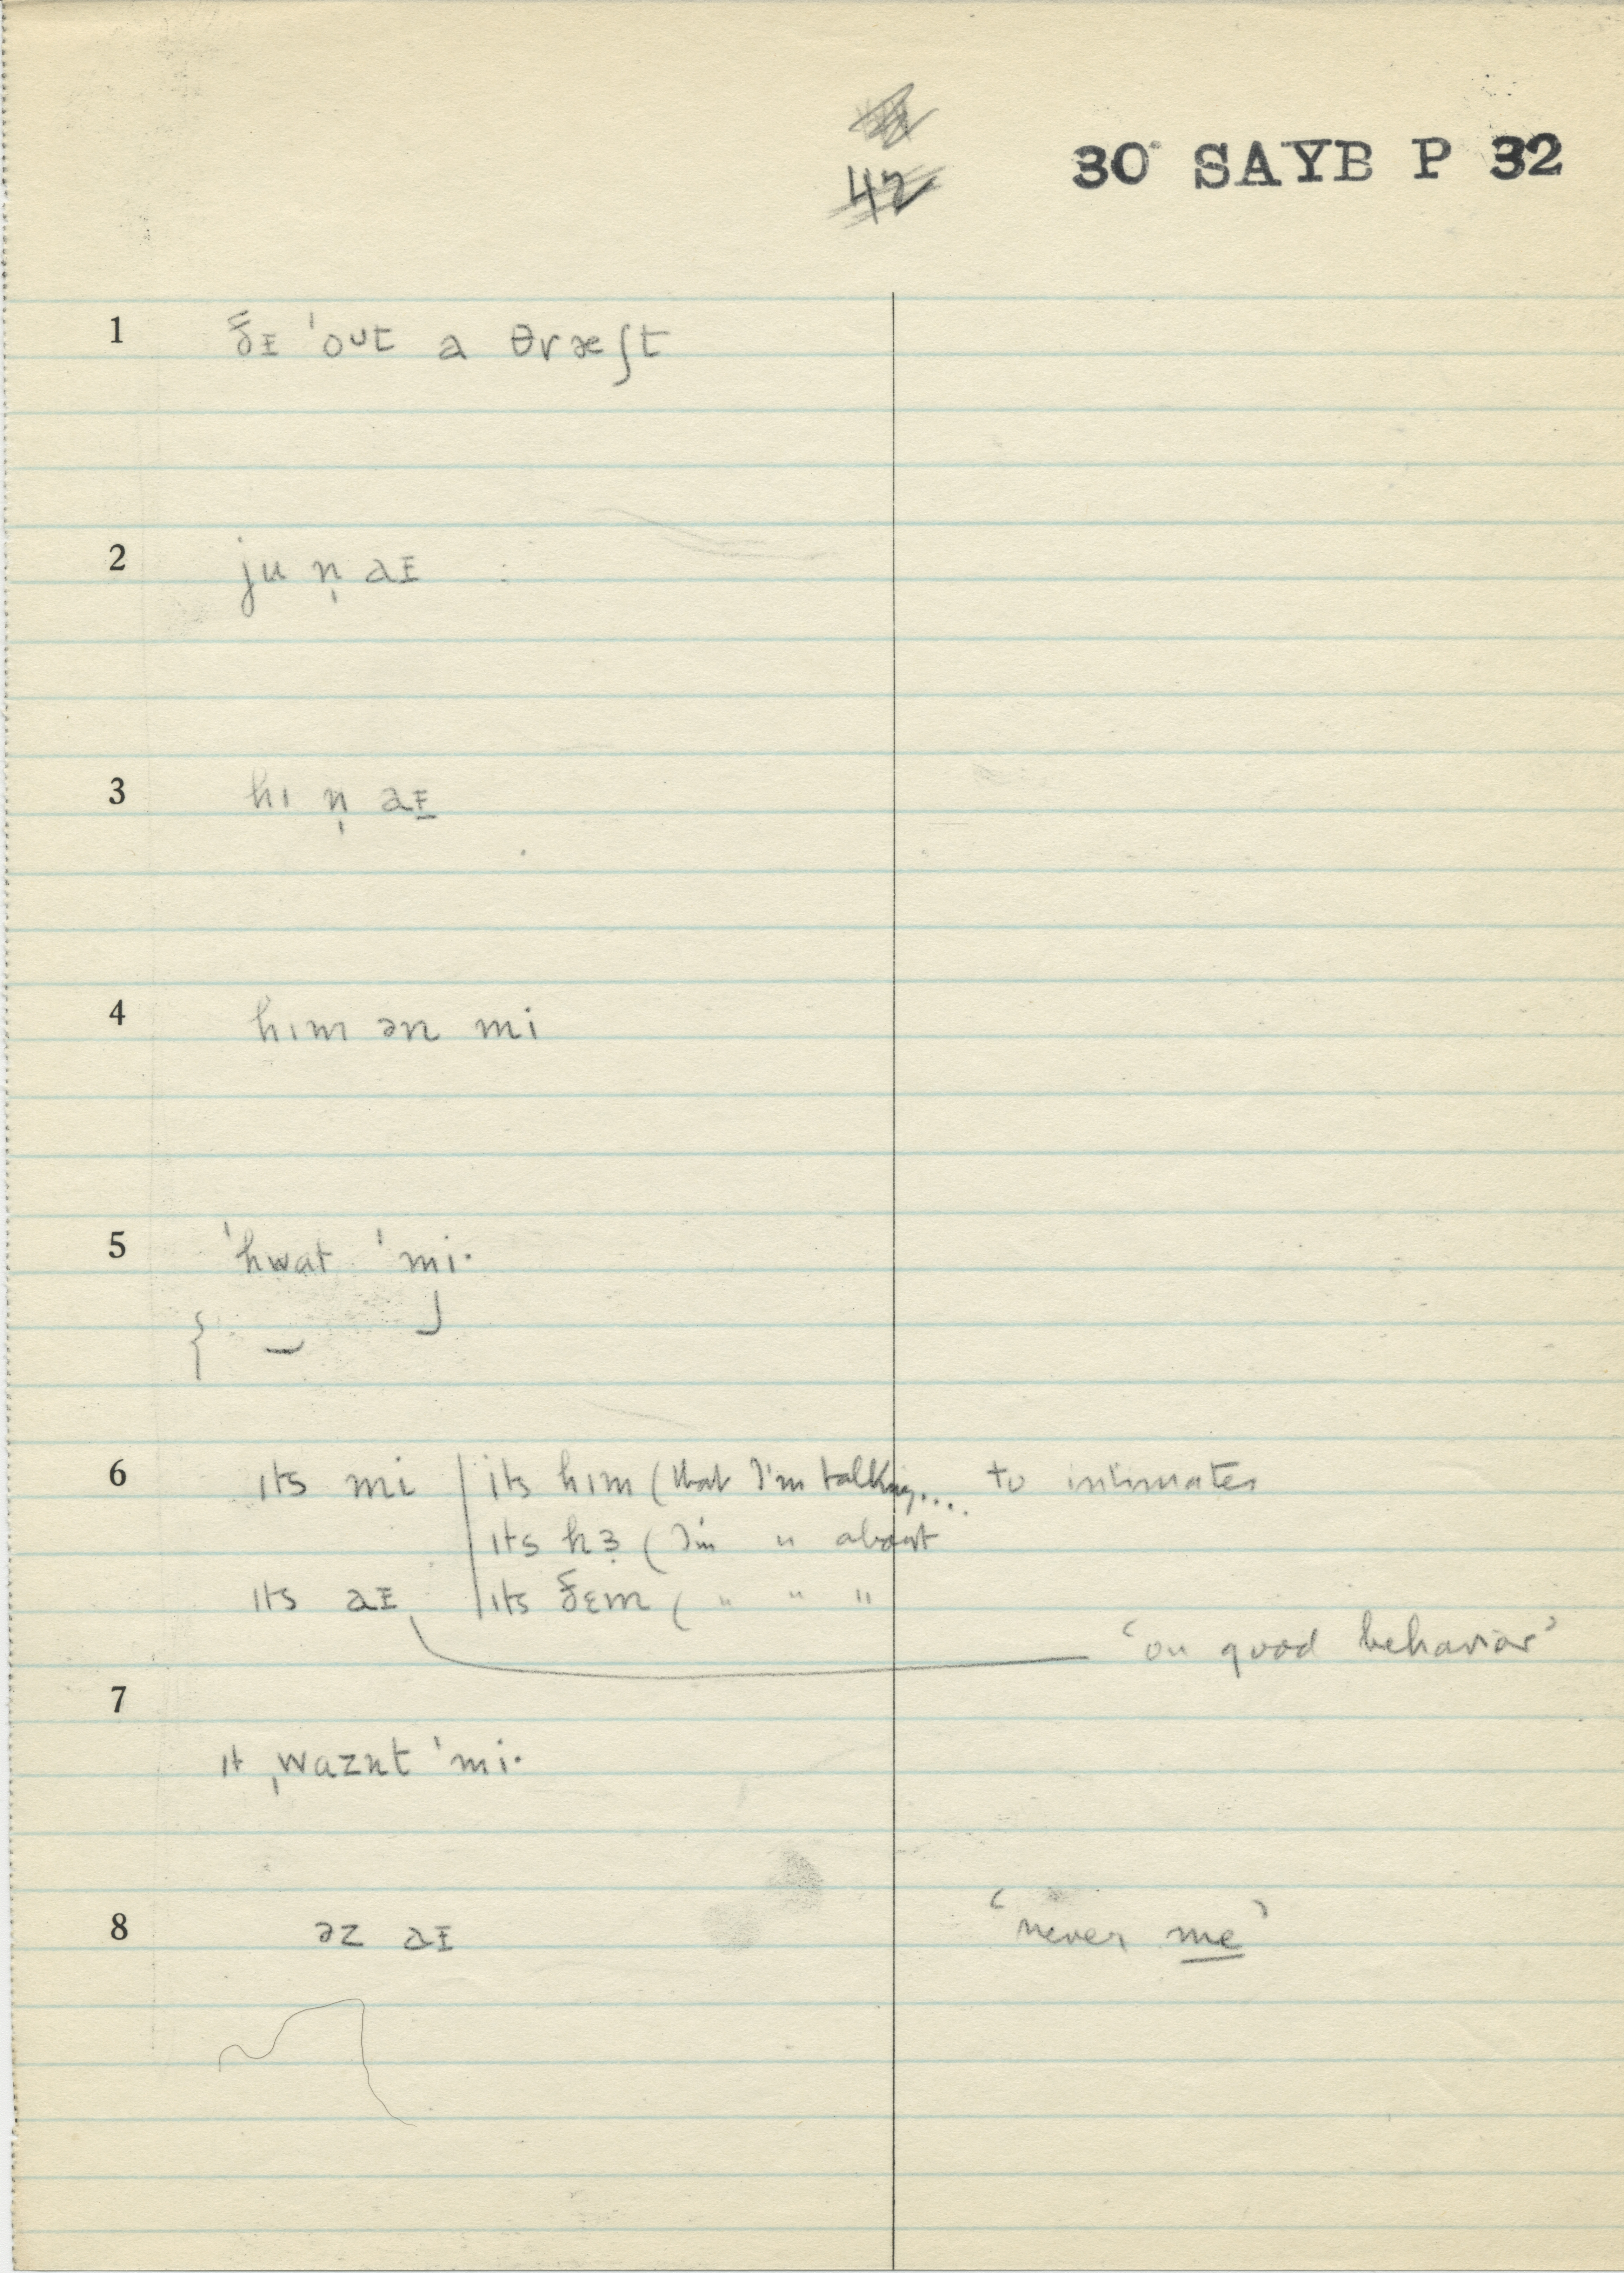 42
30 SAYB P 32
1 ðɪ ˈout a θræʃt
2 ju n̩ aɪ
3 hɪ n̩ aɪ
4 hɪm ən mi
5 ˈhwat ˈmi·
6 ɪts mi | ɪts hɪm (that I'm talking.... to intimates
ɪts hɜ̣ (I'm " about
ɪts aɪ | ɪts ðɛm ( " " "
'on good behavior'
7
ɪt ˌwaznt ˈmi·
8 əz aɪ 'never me'